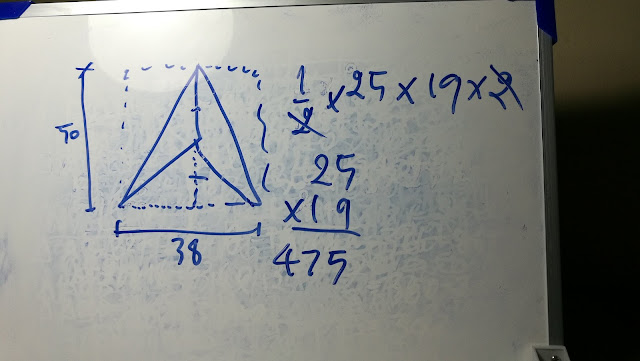 50
38
1/2 × 25 × 19 × 2
25
×19
475